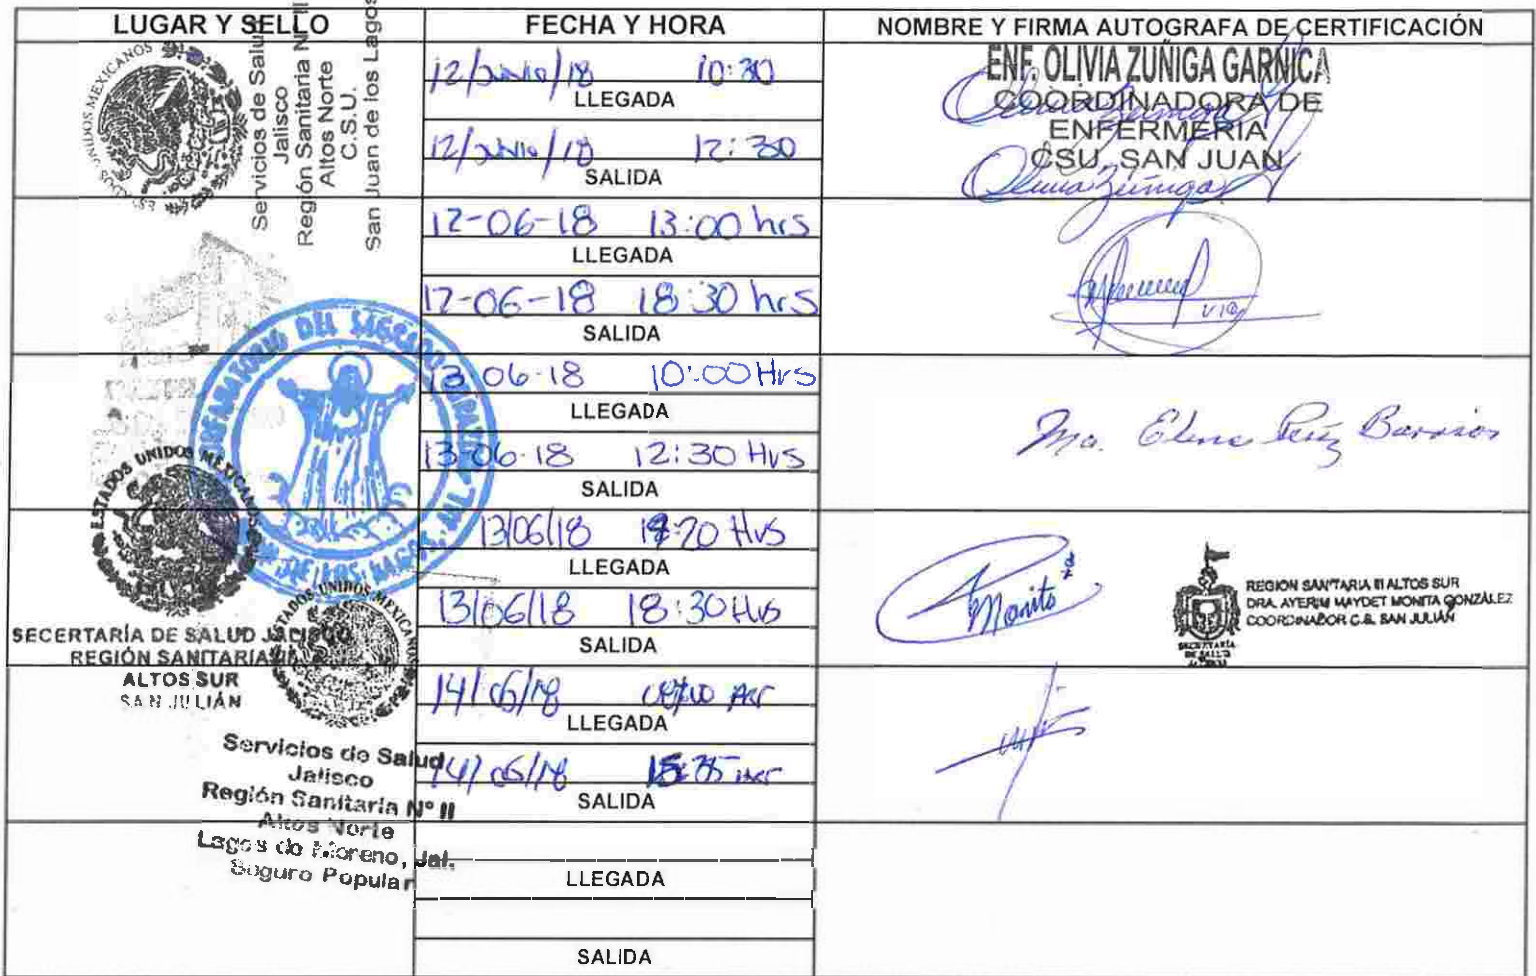 LUGAR Y SELLO
FECHA Y HORA
NOMBRE Y FIRMA AUTOGRAFA DE CERTIFICACIÓN
UNIDOS MEXICANOS
Servicios de Salud
Jalisco
Región Sanitaria N° II
Altos Norte
C.S.U.
San Juan de los Lagos
12/Junio/18 10:30
LLEGADA
12/Junio/18 12:30
SALIDA
ENF. OLIVIA ZUÑIGA GARNICA
COORDINADORA DE
ENFERMERIA
CSU. SAN JUAN
Olivia Zuñiga
12-06-18 13:00 hrs
LLEGADA
12-06-18 18:30 hrs
SALIDA
DEL SAGRADO
13-06-18 10:00 Hrs
LLEGADA
13-06-18 12:30 Hrs
SALIDA
Ma. Elena Barrios
ESTADOS UNIDOS MEXICANOS
SECERTARÍA DE SALUD JALISCO
REGIÓN SANITARIA
ALTOS SUR
SAN JULIÁN
13/06/18 Hrs
LLEGADA
13/06/18 18:30 Hrs
SALIDA
Monita
REGION SANITARIA III ALTOS SUR
DRA. AYERIM MAYDET MONITA GONZÁLEZ
COORDINADOR C.S. SAN JULIÁN
SECRETARÍA
DE SALUD
UNIDOS MEXICANOS
14/06/18
LLEGADA
14/06/18
SALIDA
Servicios de Salud
Jalisco
Región Sanitaria N° II
Altos Norte
Lagos de Moreno, Jal.
Seguro Popular
LLEGADA
SALIDA